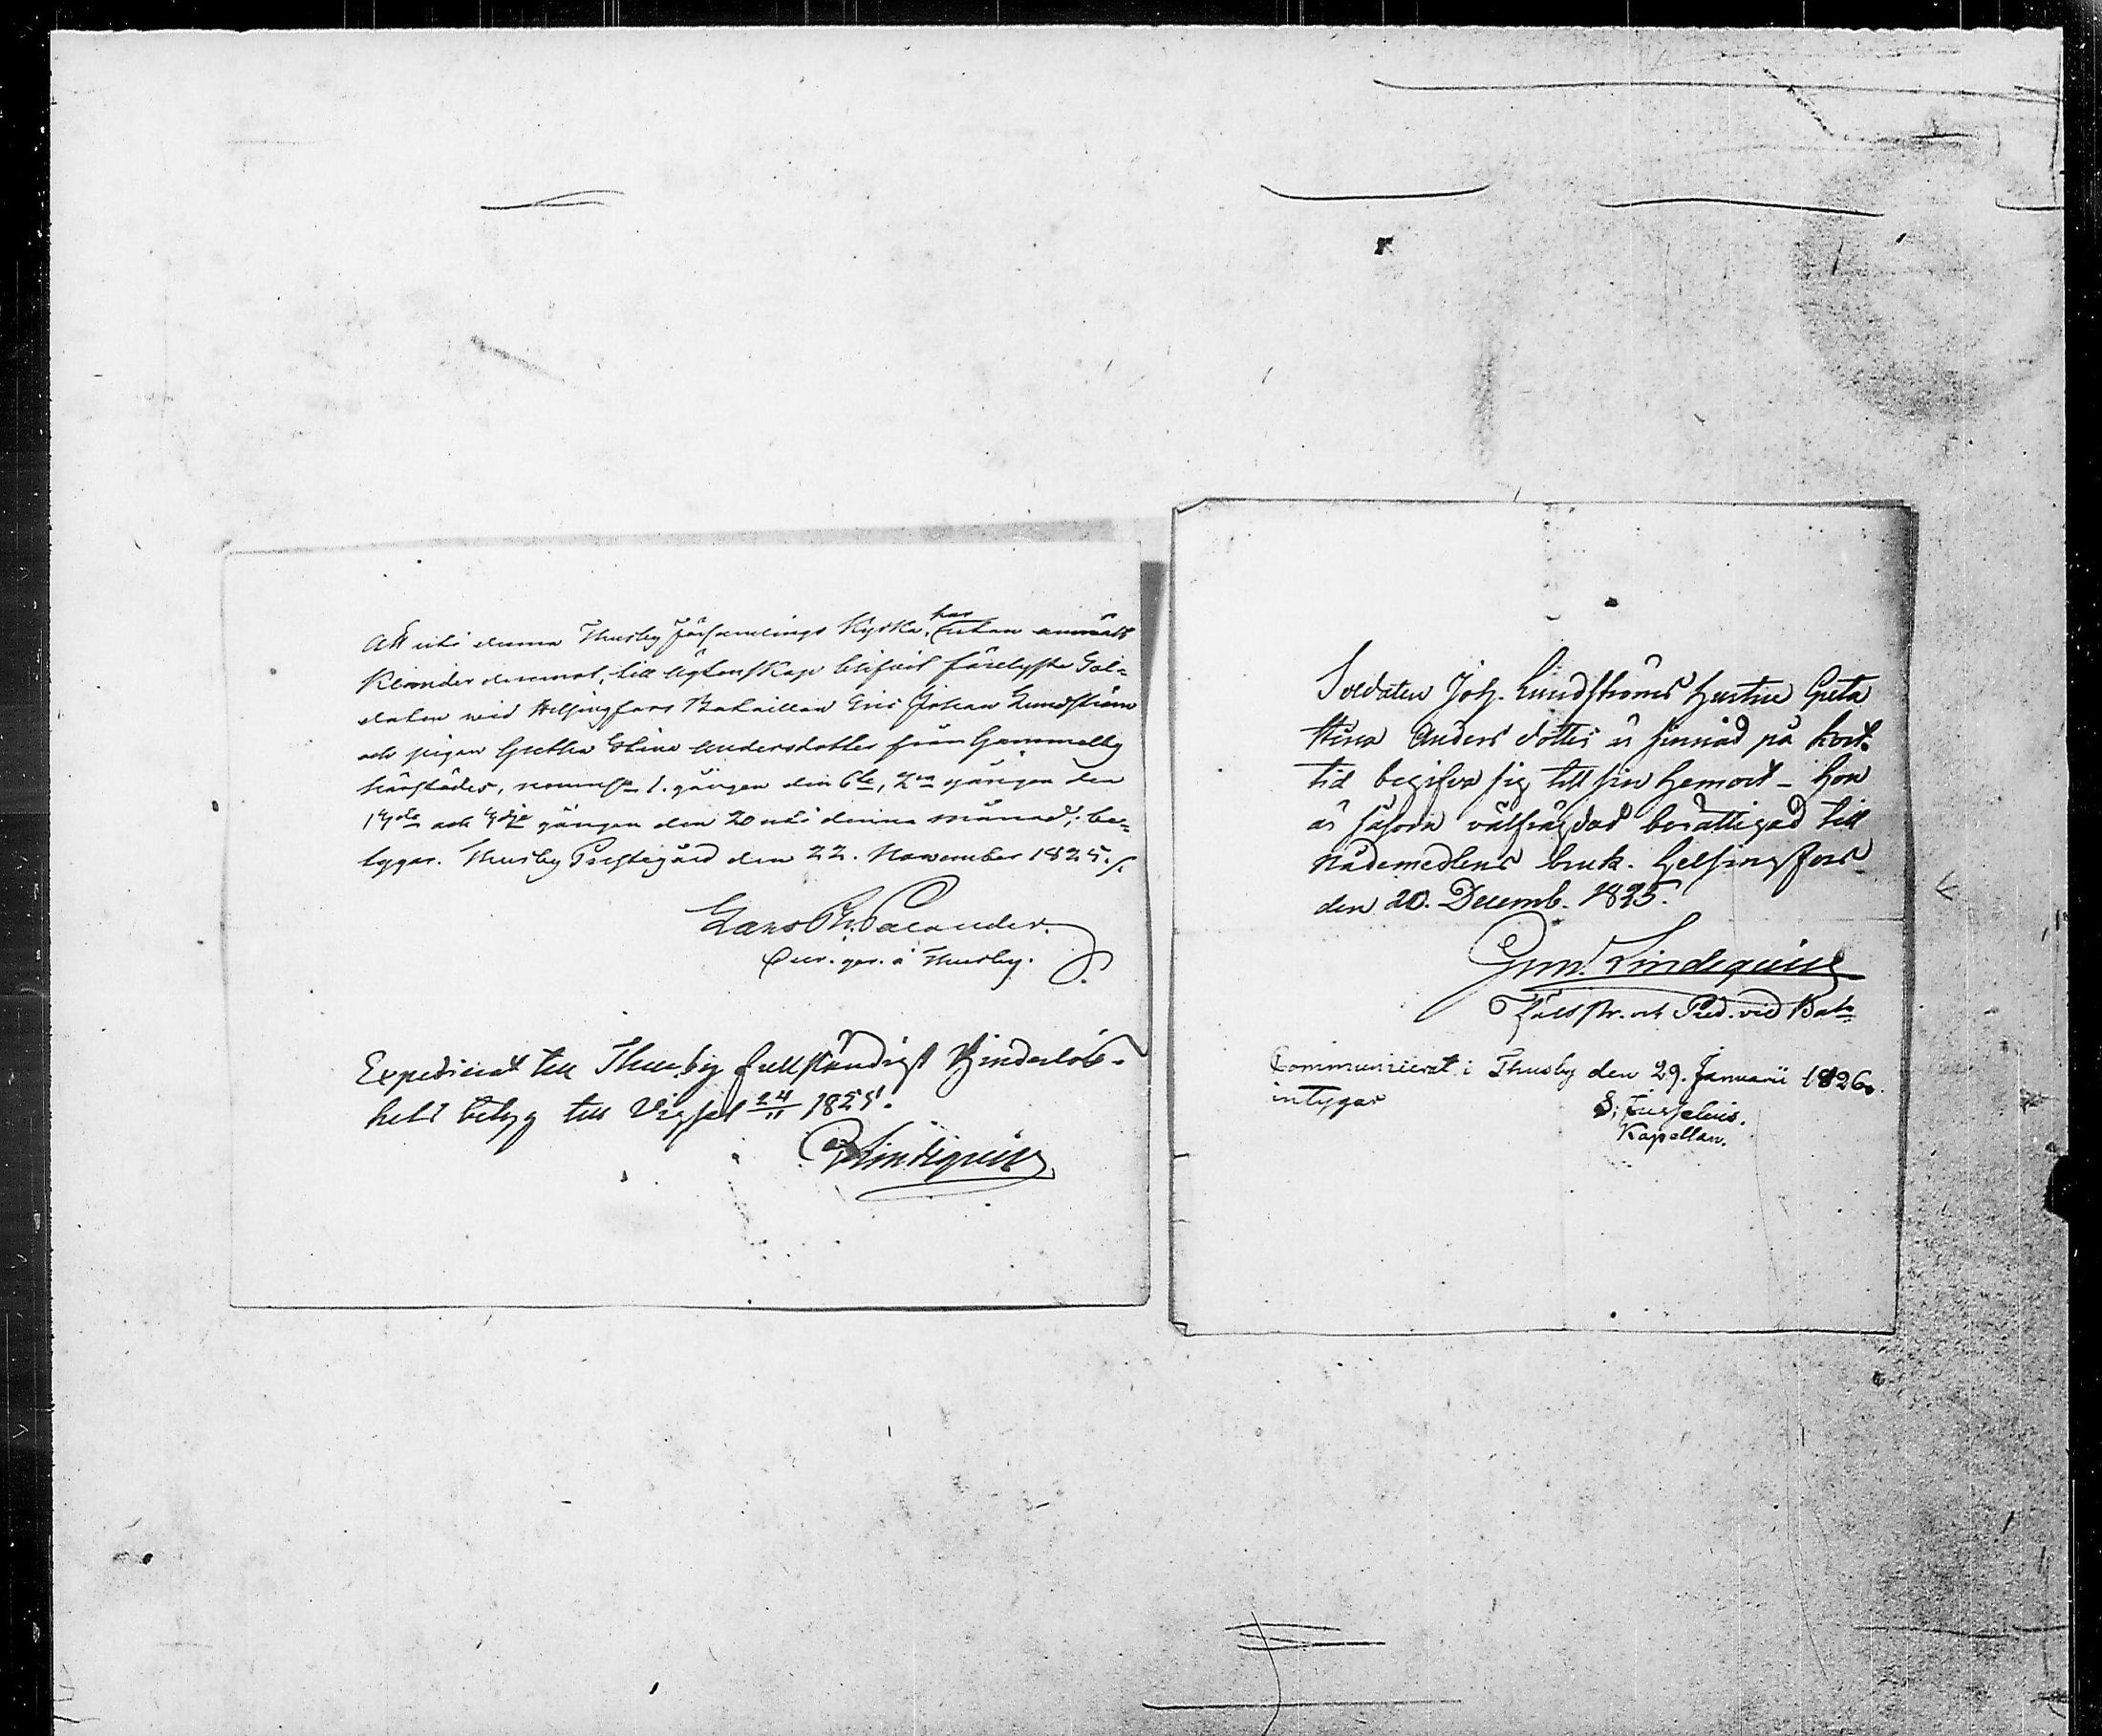 Att uti denna Thusby Församlings Kyrka, har utan anmält
Klander deremot, till ägtenskap blifvit förelyste Sol-
daten wid Helsingfors Bataillon Eric Johan Lundström
och pigan Gretha Stina Andersdotter från Gammelby
härstädes, nemnl. 1. gången den 6te, 2ra gången den
13de och 3dje gången den 20 uti denna månad; be-
tygar. Thusby Prestegård den 22. November 1825./.
Lars Palander.
Thusby.
Expedierat till Thusby fullständigt Hinderlös-
hets betyg till Vigsel 24/11 1825.
Lindequist
Soldaten Joh. Lundströms hustru Greta
Stina Anders dotter är sinnad på kort
tid begifva sig till sin hemort - hon
är såsom välfrägdad berättigad till
nådemedlens bruk. Helsingfors
den 20. Decemb. 1825.
Lindequist
och Pred. vid Bat:
Communicerat i Thusby den 29. Januarii 1826.
intygar
Kapellan.